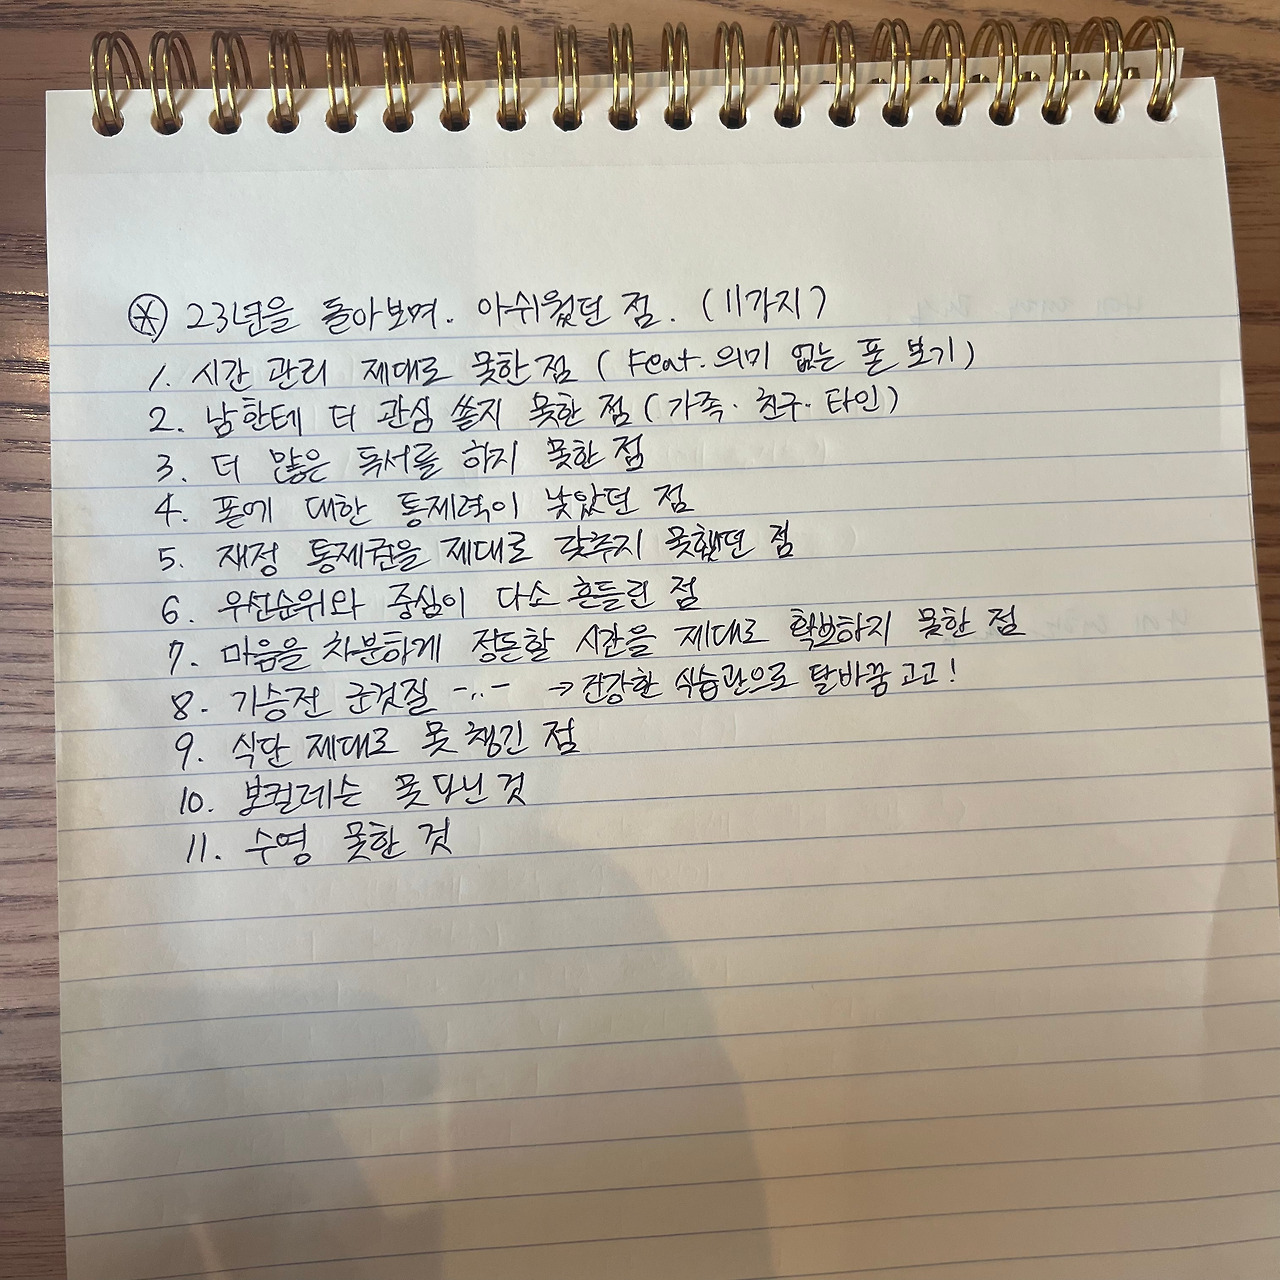 ※ 23년을 돌아보며. 아쉬웠던 점. (11가지)
1. 시간 관리 제대로 못한 점 (Feat. 의미 없는 폰 보기)
2. 남한테 더 관심 쏟지 못한 점 (가족. 친구. 타인)
3. 더 많은 독서를 하지 못한 점
4. 폰에 대한 통제력이 낮았던 점
5. 재정 통제권을 제대로 갖추지 못했던 점
6. 우선순위와 중심이 다소 흔들린 점
7. 마음을 차분하게 정돈할 시간을 제대로 확보하지 못한 점
8. 기승전 군것질 -..- → 건강한 식습관으로 탈바꿈 고고!
9. 식단 제대로 못 챙긴 점
10. 보컬레슨 못 다닌 것
11. 수영 못한 것